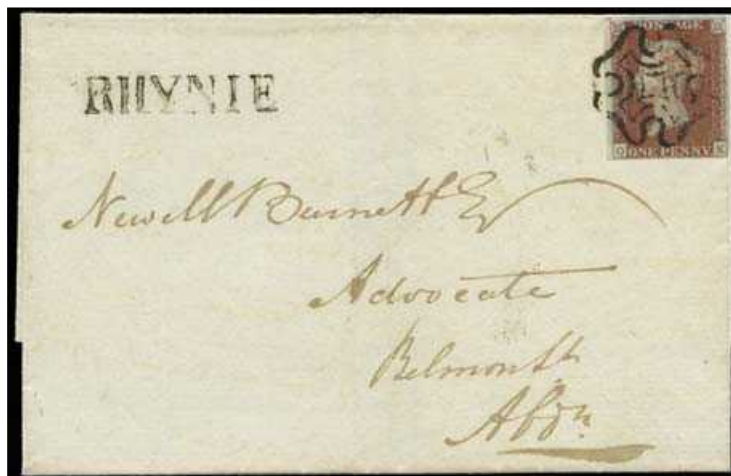 POSTAGE
RHYNIE
ONE PENNY K
Newell Burnett Esq
Advocate
Belmont St
Abdn